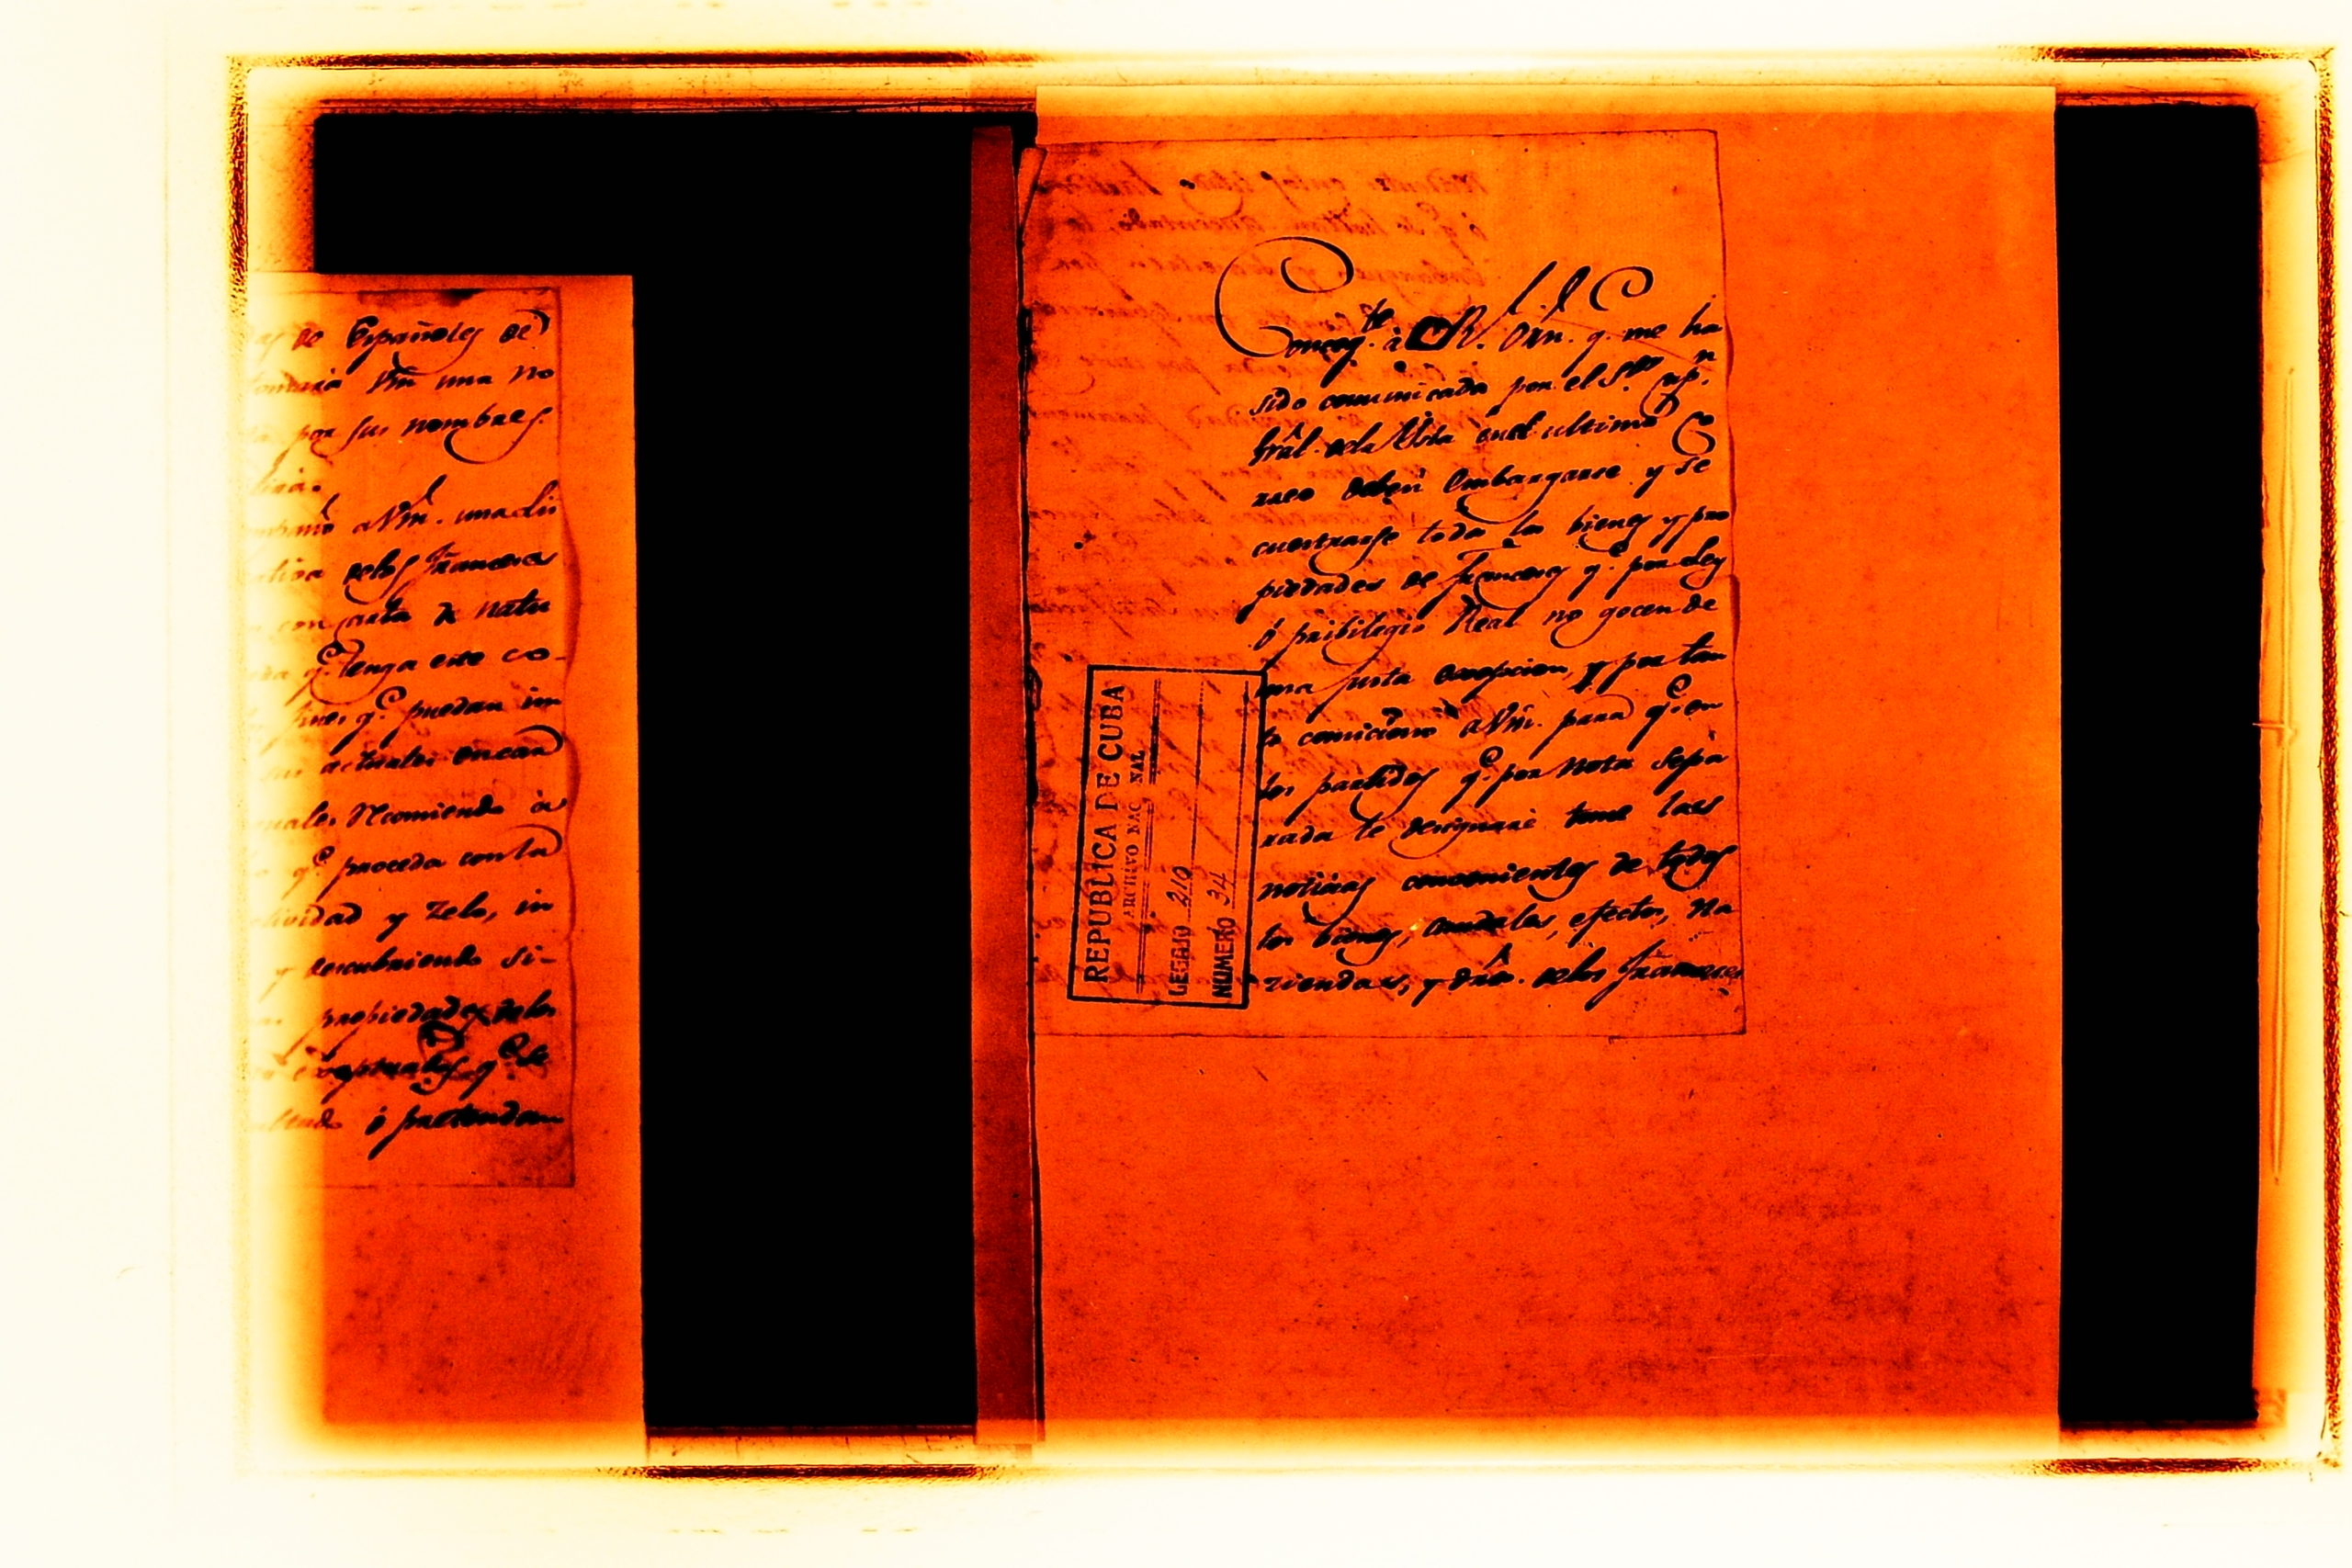 de Españoles de
Vm una no
por sus nombres.
a Vm. una lis
delos Franceses
con carta de natu
q.e tenga este co-
fines q.e puedan im
sus actuales encar
Recomiendo à
q.e proceda con la
actividad y Zelo, in
y descubriendo si-
propiedades delos
exceptuales q.e se
ó pretendan
Conseq.te à R. Orn. q. me ha
sido comunicada por el S.or Cap.n
Gral. dela Isla enel ultimo Co
rreo deben embargarse y se
cuestrarse todos los bienes y pro
piedades de Franceses q.e por Ley
ó pribilegio Real no gocen de
una justa excepcion, y por tan
to comiciono a Vm. para q.e en
los partidos q.e por nota sepa
rada le designaré tome las
noticias convenientes de todos
los bienes, caudales, efectos, Ha
ziendas, y dros. delos Franceses
REPUBLICA DE CUBA
ARCHIVO NACIONAL
LEGAJO 210
NUMERO 34